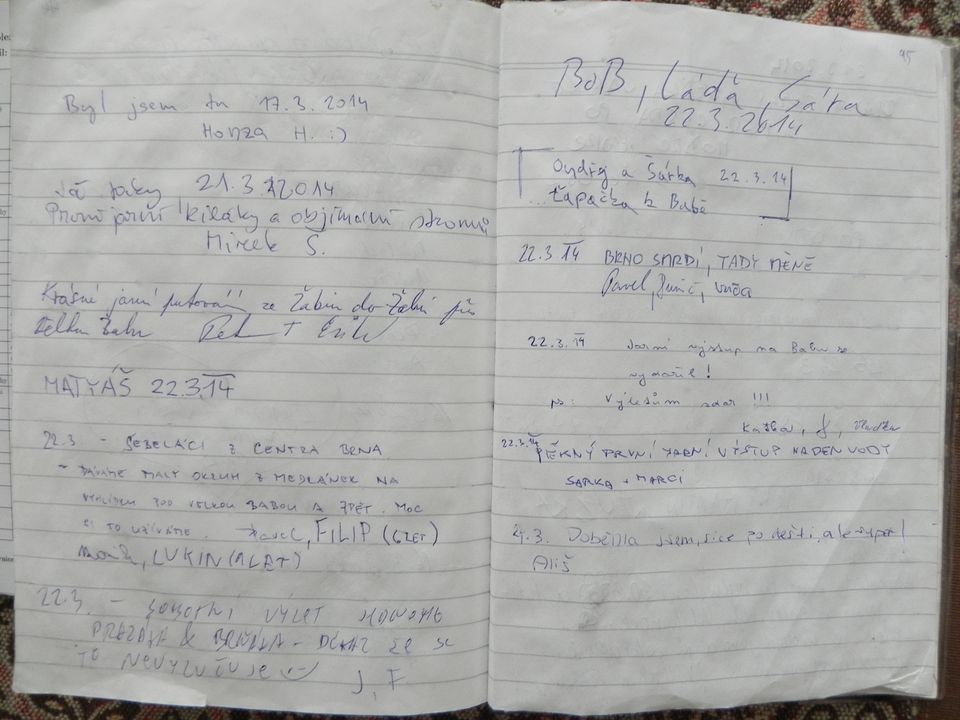 Byl jsem tu 17.3.2014
Honza H. :)
Já taky 21.3.2014
První jarní kiláky a objímání stromů
Mirek S.
Krásné jarní putování ze Žabin do Žabin přes
Velkou Babu
MATYÁŠ 22.3.14
22.3 - ŠEBELÁCI Z CENTRA BRNA
- DÁVÁME MALÝ OKRUH Z MEDLÁNEK NA
VYHLÍDKU POD VELKOU BABOU A ZPĚT. MOC
SI TO UŽÍVÁME. FILIP (6LET)
LUKIN (1 LET)
22.3. - SOBOTNÍ VÝLET
BRŇÁKA - DŮKAZ ŽE SE
TO NEVYLUČUJE
J, F
95
BoB, Láďa, Sára
22.3.2014
Ondřej a Šárka 22.3.14
...Ťapačka k Babě
22.3 14 BRNO SMRDÍ, TADY MÉNĚ
Pavel,
22.3.14 Jarní výstup na Babu se
vydařil!
ps: Výletům zdar !!!
22.3.14 PĚKNÝ PRVNÍ JARNÍ VÝSTUP NADEN VODY
SARKA + MARCI
Doběhla jsem, sice po dešti, ale
Ališ